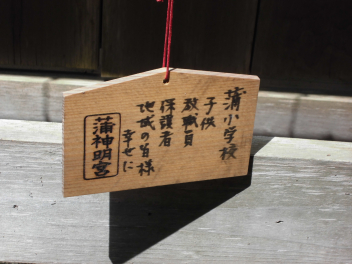 蒲小学校
子供
教職員
保護者
地域の皆様
幸せに
蒲神明宮